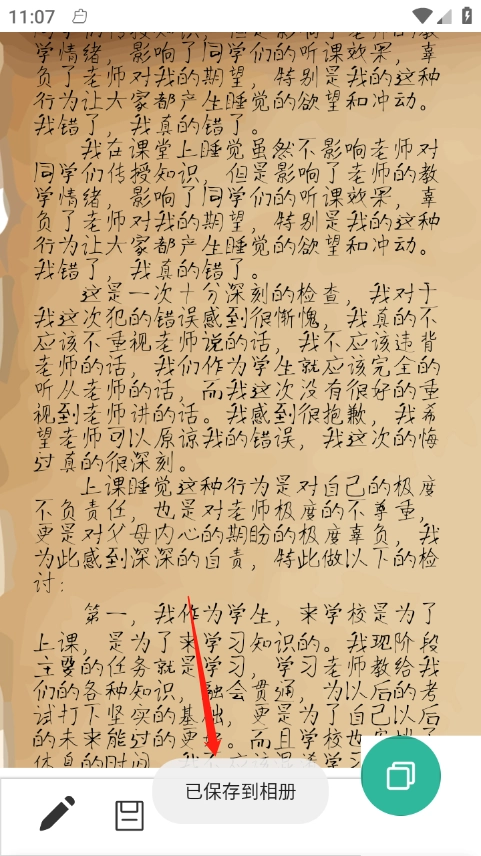 11:07
同学们传授知识，但是影响了老师的教
学情绪，影响了同学们的听课效果，辜
负了老师对我的期望，特别是我的这种
行为让大家都产生睡觉的欲望和冲动。
我错了，我真的错了。
我在课堂上睡觉虽然不影响老师对
同学们传授知识，但是影响了老师的教
学情绪，影响了同学们的听课效果，辜
负了老师对我的期望，特别是我的这种
行为让大家都产生睡觉的欲望和冲动。
我错了，我真的错了。
这是一次十分深刻的检查，我对于
我这次犯的错误感到很惭愧，我真的不
应该不重视老师说的话，我不应该违背
老师的话，我们作为学生就应该完全的
听从老师的话，而我这次没有很好的重
视到老师讲的话。我感到很抱歉，我希
望老师可以原谅我的错误，我这次的悔
过真的很深刻。
上课睡觉这种行为是对自己的极度
不负责任，也是对老师极度的不尊重，
更是对父母内心的期盼的极度辜负，我
为此感到深深的自责，特此做以下的检
讨：
第一，我作为学生，来学校是为了
上课，是为了来学习知识的。我现阶段
主要的任务就是学习，学习老师教给我
们的各种知识，融会贯通，为以后的考
试打下坚实的基础，更是为了自己以后
的未来能过的更好。而且学校也安排了
休息的时间，我不应该混淆学习
已保存到相册